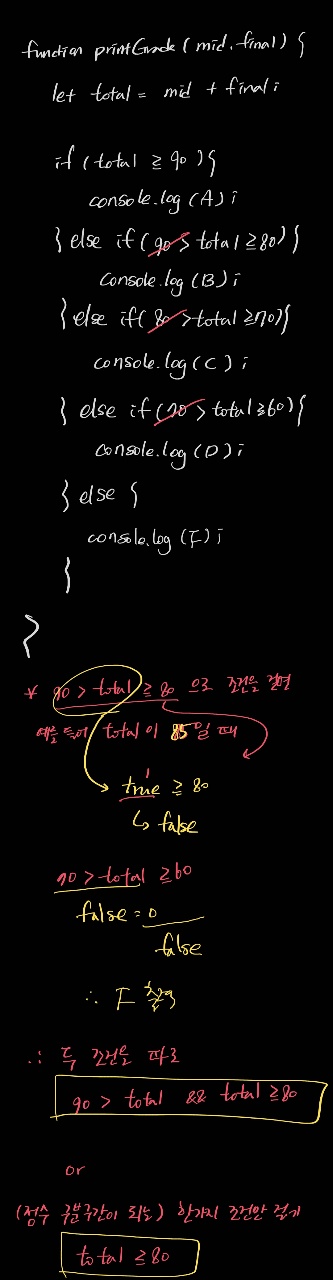 function printGrade ( mid, final ) {
let total = mid + final ;
if ( total ≥ 90 ) {
console.log (A) ;
} else if ( 90 > total ≥ 80 ) {
console.log (B) ;
} else if ( 80 > total ≥ 70 ) {
console.log ( C ) ;
} else if ( 70 > total ≥ 60 ) {
console.log ( D ) ;
} else {
console.log (F) ;
}
}
* 90 > total ≥ 80 으로 조건을 걸면
예를 들어 total 이 85 일 때
1
true ≥ 80
↳ false
70 > total ≥ 60
false = 0
false
∴ F 출력
∴ 두 조건을 따로
90 > total && total ≥ 80
or
(점수 구분구간이 되는) 한가지 조건만 걸기
total ≥ 80